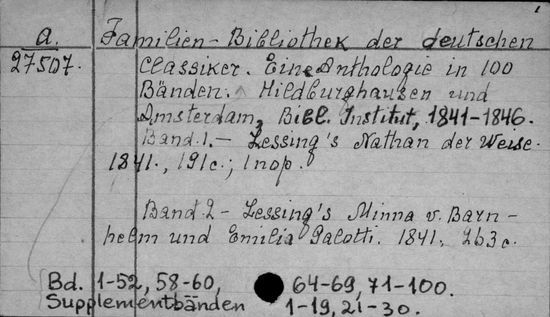 1
a. Familien-Bibliothek der deutschen
27507. Classiker. Eine Anthologie in 100
Bänden. Hildburghausen und
Amsterdam, Bibl. Institut, 1841-1846.
Band.1.- Lessing's Nathan der Weise.
1841., 191c.; 1nop.
Band 2- Lessing's Minna v. Barn-
helm und Emilia Galotti. 1841. 263c.
Bd. 1-52, 58-60, 64-69, 71-100.
Supplementbänden 1-19, 21-30.